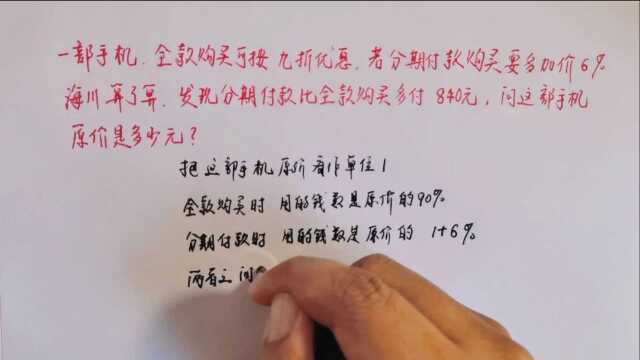 一部手机.全款购买可按九折优惠.若分期付款购买要多加价6%
海川算了算.发现分期付款比全款购买多付840元,问这部手机
原价是多少元?
把这部手机原价看作单位1
全款购买时 用的钱数是原价的90%
分期付款时 用的钱数是原价的 1+6%
两者之间